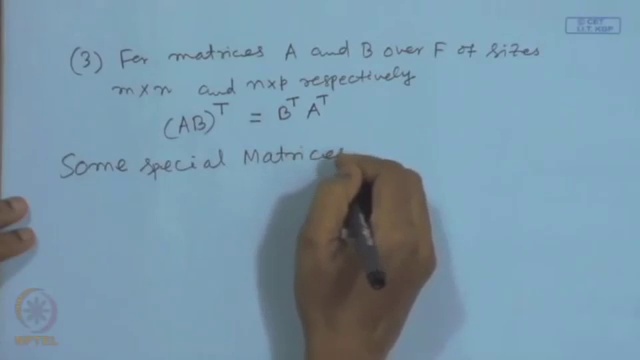 (3) For matrices A and B over F of sizes
m×n and n×p respectively
(AB)^T = B^T A^T
Some special Matrices
© CET
I.I.T. KGP
NPTEL